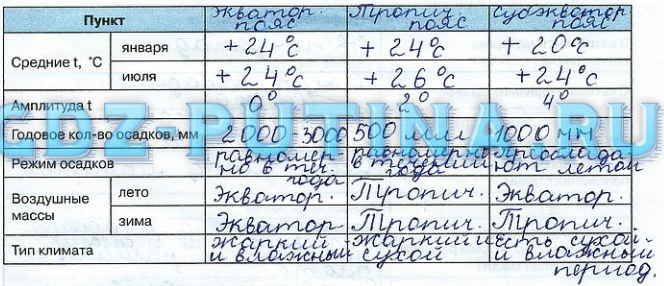 Пункт Экватор. пояс Тропич. пояс Субэкватор пояс
Средние t, °С января +24°С +24°С +20°С
июля +24°С +26°С +24°С
Амплитуда t 0° 2° 4°
Годовое кол-во осадков, мм 2000-3000 500 мм 1000 мм
Режим осадков равномерно в теч. года равномерно в течении года преобладают летом
Воздушные массы лето Экватор. Тропич. Экватор.
зима Экватор Тропич. Тропич.
Тип климата жаркий и влажный жаркий и сухой есть сухой и влажный период.
GDZ-PUTINA.RU